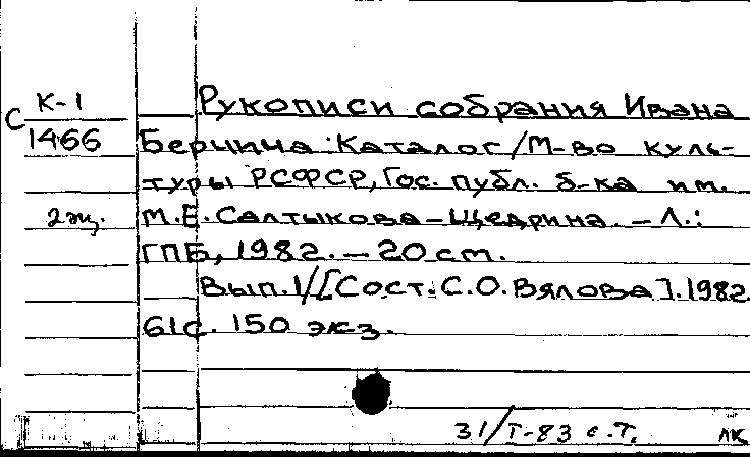 К-1
С
1466
2 экз.
Рукописи собрания Ивана
Берчича : Каталог / М-во куль-
туры РСФСР, Гос. публ. б-ка им.
М.Е. Салтыкова-Щедрина. - Л.:
ГПБ, 1982. - 20 см.
Вып. 1/[Сост. С.О. Вялова]. 1982
61с. 150 экз.
31/Т-83 с.т.
АК